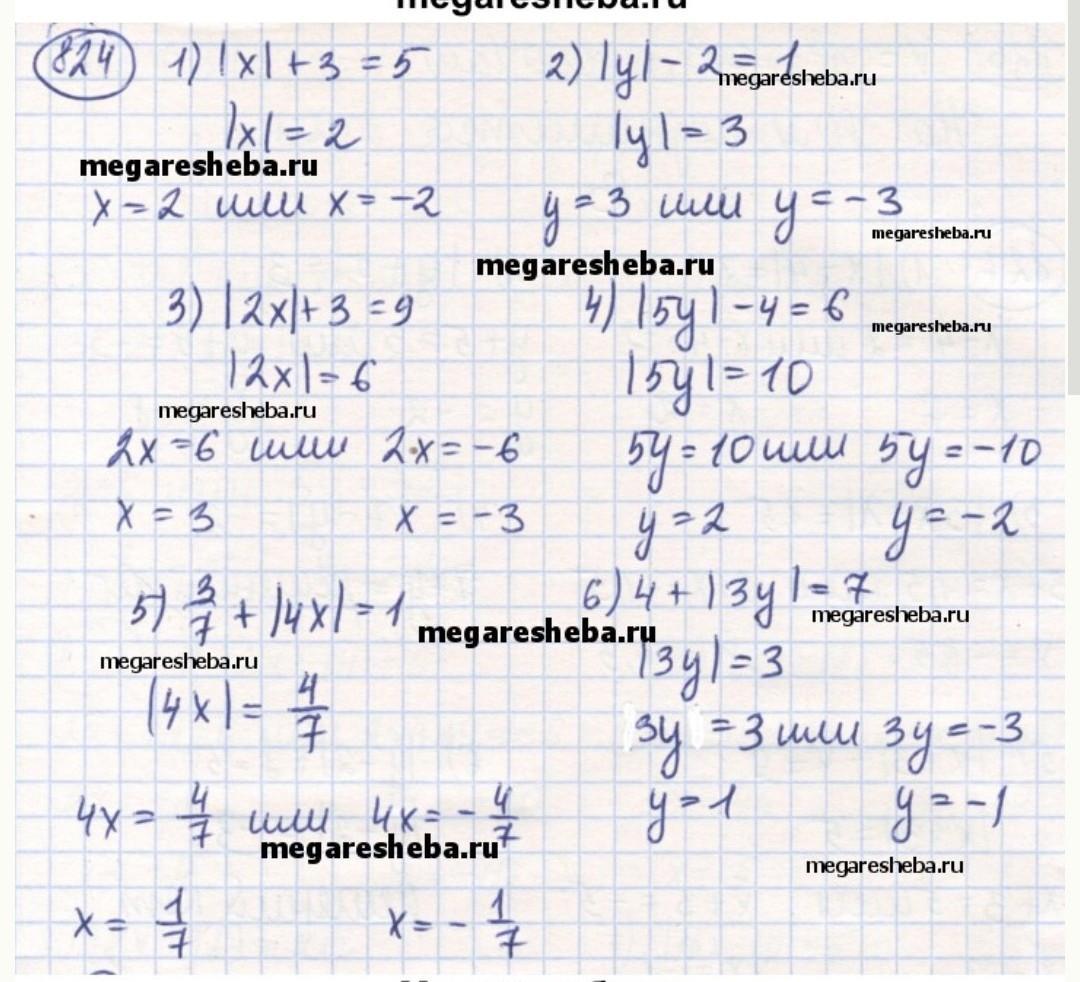 megaresheba.ru
824 1) |x| + 3 = 5 2) |y| - 2 = 1
megaresheba.ru
|x| = 2 |y| = 3
megaresheba.ru
x = 2 или x = -2 y = 3 или y = -3
megaresheba.ru
megaresheba.ru
3) |2x| + 3 = 9 4) |5y| - 4 = 6
megaresheba.ru
|2x| = 6 |5y| = 10
megaresheba.ru
2x = 6 или 2x = -6 5y = 10 или 5y = -10
x = 3 x = -3 y = 2 y = -2
5) 3/7 + |4x| = 1 6) 4 + |3y| = 7
megaresheba.ru megaresheba.ru
megaresheba.ru
|4x| = 4/7 |3y| = 3
3y = 3 или 3y = -3
4x = 4/7 или 4x = -4/7 y = 1 y = -1
megaresheba.ru megaresheba.ru
x = 1/7 x = -1/7